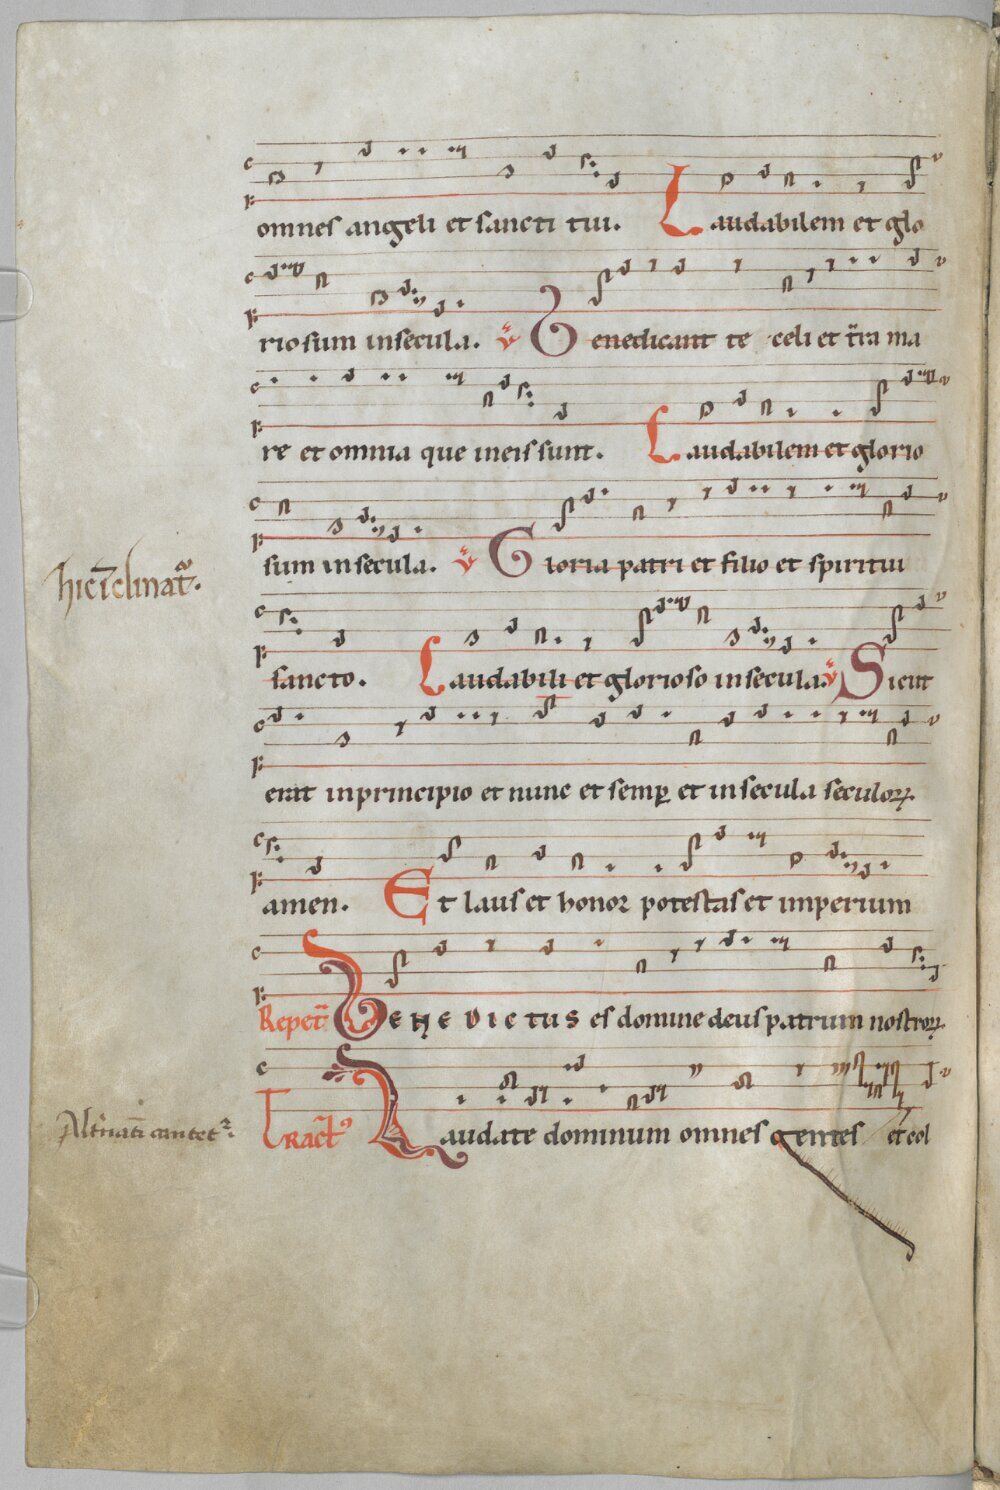 omnes angeli et sancti tui. Laudabilem et glo
riosum insecula. ℣ Benedicant te celi et t̄ra ma
re et omnia que ineis sunt. Laudabilem et glorio
sum insecula. ℣ Gloria patri et filio et spiritui
hic īclinat᷑.
sancto. Laudabili et glorioso insecula. ℣ Sicut
erat inprincipio et nunc et semꝑ et insecula seculoꝝ.
amen. Et laus et honor potestas et imperium
Repet̄ Benedictus es domine deus patrum nostroꝝ.
Alt̓nati cantet᷑.
Tract᷒ Laudate dominum omnes gentes et col